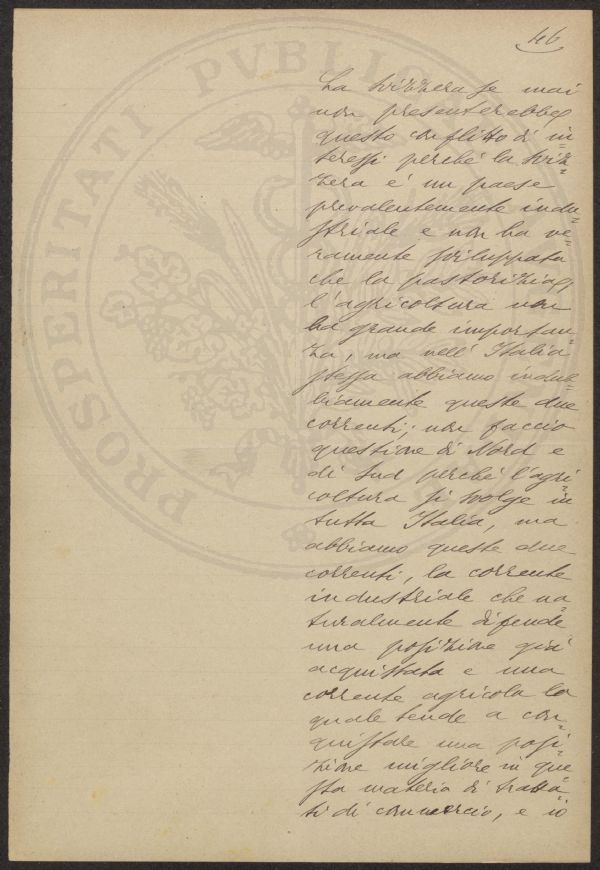 46
La Svizzera se mai
non presenterebbe
questo conflitto di in=
teressi perché la Sviz=
zera é un paese
prevalentemente indu=
striale e non ha ve=
ramente sviluppata
che la pastorizia,
l'agricoltura non
ha grande importan=
za, ma nell'Italia
stessa abbiamo indub=
biamente queste due
correnti; non faccio
questione di Nord e
di Sud perché l'agri=
coltura si svolge in
tutta Italia, ma
abbiamo queste due
correnti, la corrente
industriale che na=
turalmente difende
una posizione giá
acquistata e una
corrente agricola la
quale tende a con=
quistare una posi=
zione migliore in que=
sta materia di tratta=
ti di commercio, e io
PROSPERITATI PVBLIC